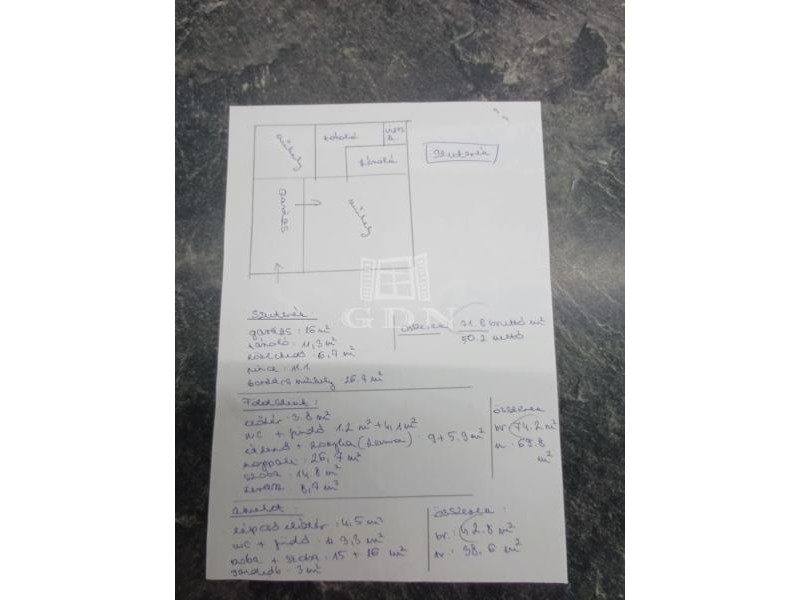 műhely
tároló
tároló
Garázs
műhely
Szuterén
GDN
Szuterén:
garázs: 16 m²
tároló: 11,3 m²
közlekedő: 6,7 m²
pince: 11.1
műhely 26.9 m²
összesen 91.8 bruttó m²
50.2 nettó
Földszint:
előtér: 3.8 m²
wc + fürdő 1.2 m² + 4,1 m²
étkező + konyha (kamra) 9+5.9 m²
nappali: 26,7 m²
szoba: 14.8 m²
terasz 8,7 m²
összesen
br: 74.2 m²
n: 69.8 m²
emelet:
előtér: 4.5 m²
wc + fürdő: 3,3 m²
szoba + szoba: 15 + 16 m²
gardrób: 3 m²
összesen:
br.: 42.8 m²
n.: 38.6 m²